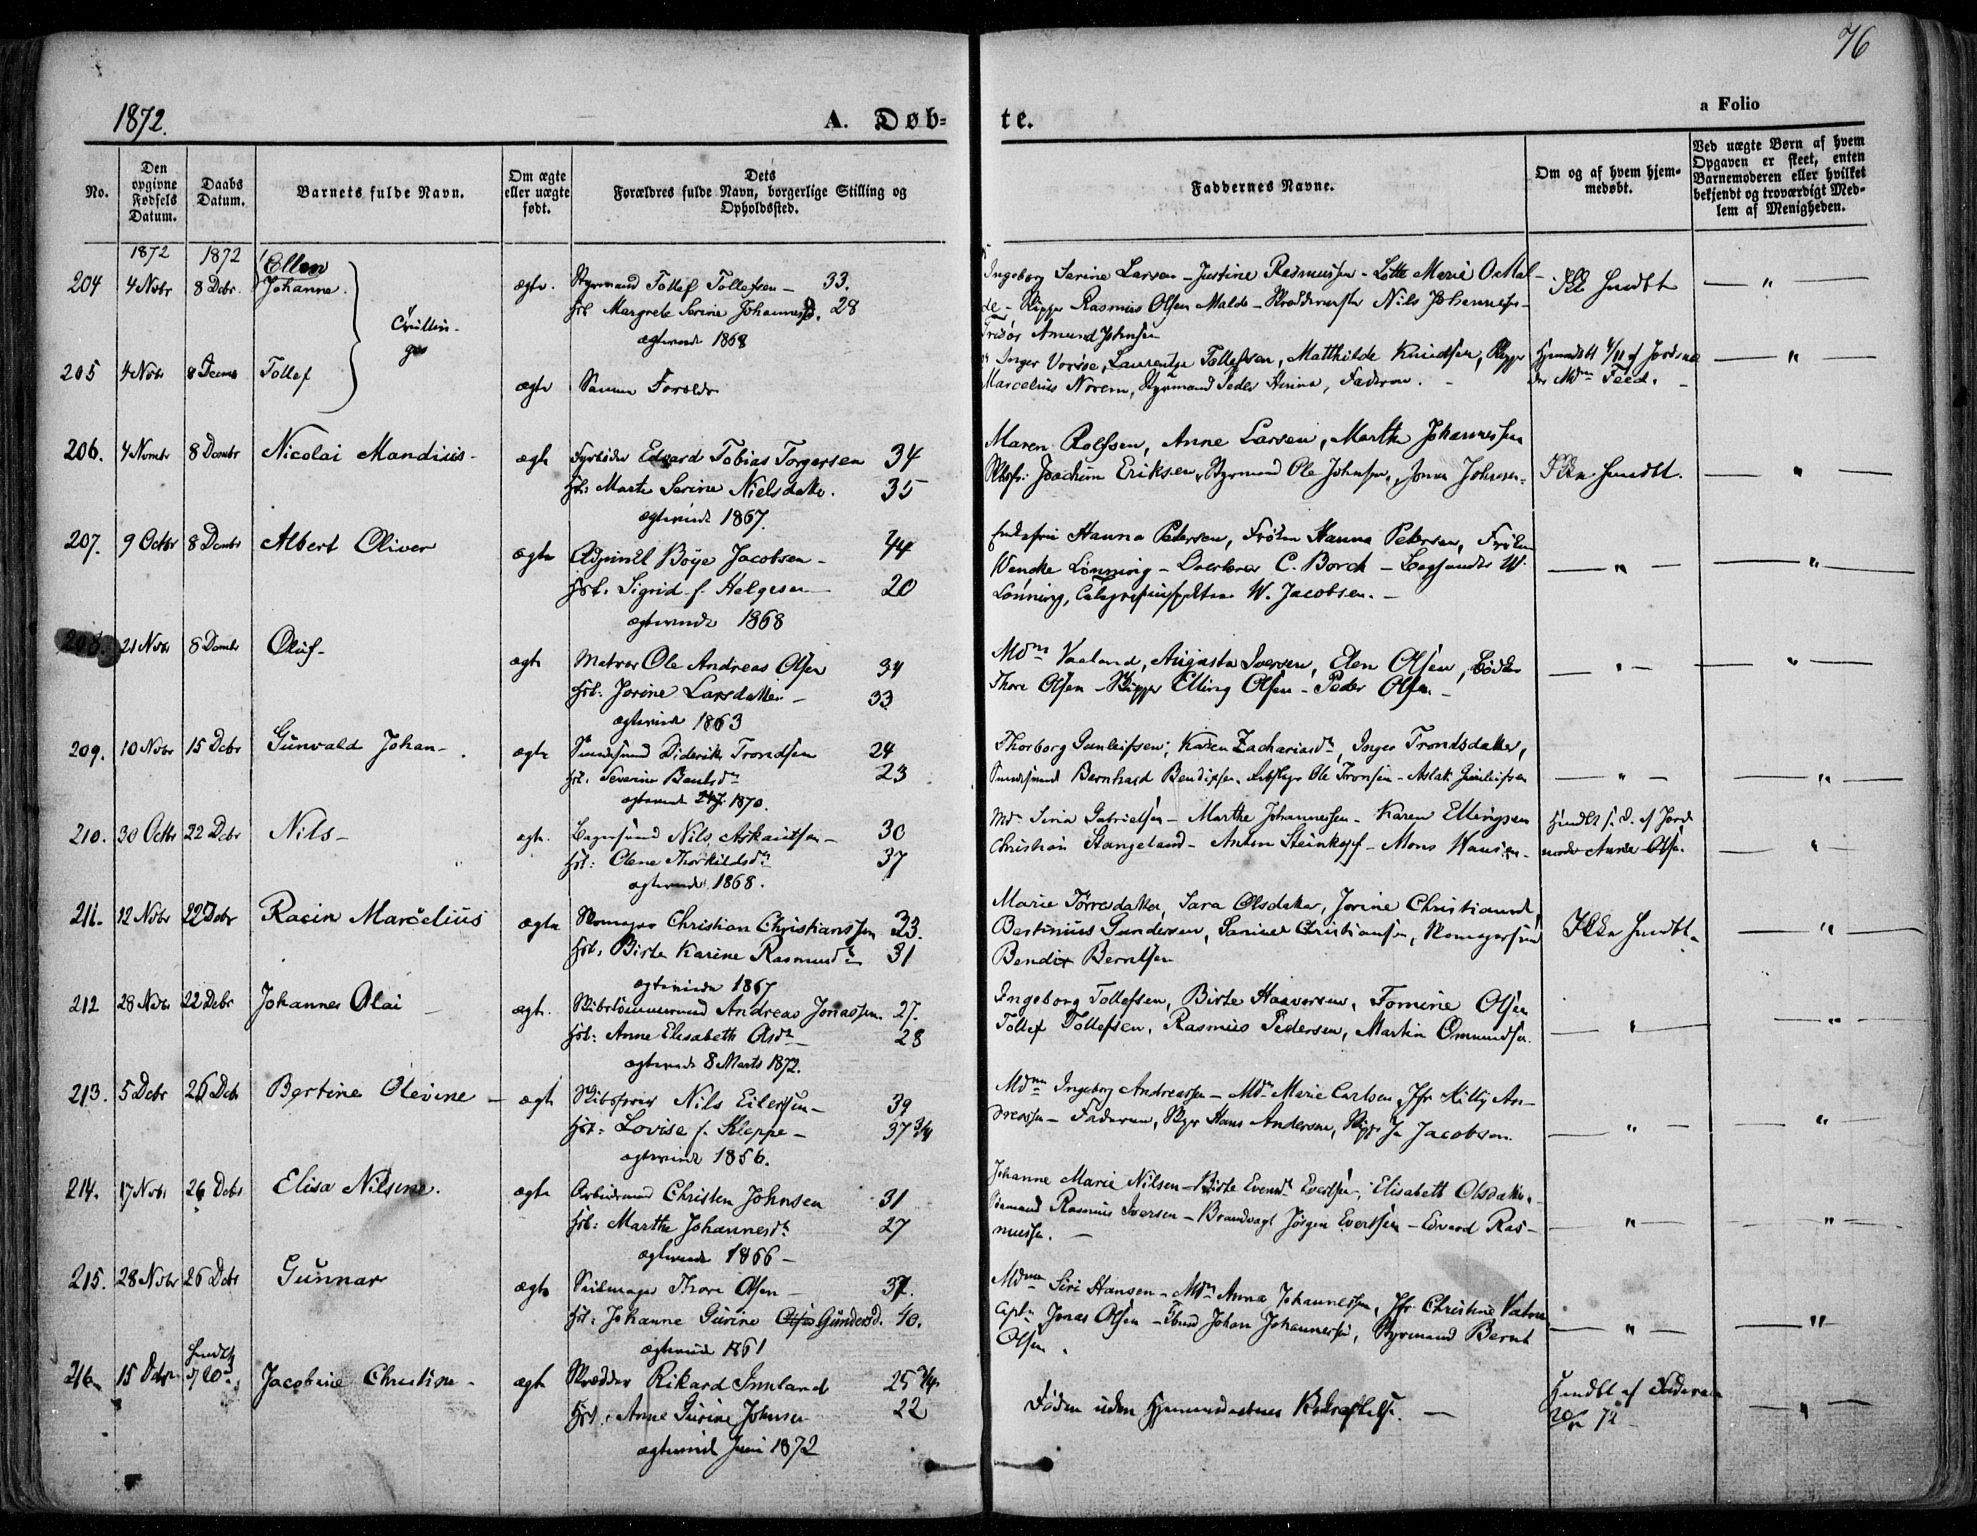 76
1872.
A. Døb-
te.
a Folio
No.
Den opgivne Fødsels Datum.
Daabs Datum.
Barnets fulde Navn.
Om ægte eller uægte født.
Dets Forældres fulde Navn, borgerlige Stilling og Opholdssted.
Faddernes Navne.
Om og af hvem hjemmedøbt.
Ved uægte Børn af hvem Opgaven er skeet, enten Barnemoderen eller hvilket bekjendt og troværdigt Medlem af Menigheden.
1872 1872
204 4 Novbr 8 Decbr. Ellen Johanne. ægte. Styrmand Tollef Tollefsen – 33.
Hst. Margrete Serine Johannesd. 28
ægteviede 1868
Ingeborg Serine Larsen – Justine Rasmussen – Lotte Marie O Mal-
de – Skipper Rasmus Olsen Malde – Skræddermester Nils Johannes-
Amund Johnsen
Ikke hmdbt "
Tvillin-
ger
205 4 Novbr 8 Decmb Tollef ægte Samme Forældre
Inger Vorsøe, Laurentze Tollefsen, Matthilde Knudsen, Skipper
Marcelius Norem, Styrmand Peder Hinna, Faderen. –
Hjemmedøbt 4/11 af Jordmo-
der Mdm "
206. 4 Novmbr 8 Decmbr Nicolai Mandius – ægte Fyrbøder Edvard Tobias Torgersen 34
Hst: Marte Serine Nielsdatter. 35
ægteviede 1867.
Maren Rolfsen, Anne Larsen, Marthe Johannessen
Joachim Eriksen, Styrmand Ole Johnsen, Jonas Johnsen.
Ikke hmdbt. "
207. 9 Octbr 8 Decmbr Albert Oliver ægte Böye Jacobsen – 44
Hst. Sigrid f. Helgesen 20
ægteviede 1868
Hanna Petersen, Frøken Hanna Petersen, Frøken
Wencke Lønning – Overlærer C. Borch – Sagfører W.
Lönning, W. Jacobsen. –
" "
208. 21 Novbr 8 Decmbr Oluf – ægte Matros Ole Andreas Olsen 34
Hst: Jorine Larsdatter – 33
ægteviede 1863
Mdm Vaaland, Augusta Iversen, Elen Olsen, Bødker
Thore Olsen – Skipper Elling Olsen – Peder Olsen –
" "
209. 10 Novbr 15 Decbr Gunvald Johan – ægte Diderik Trondsen 24
Hst: Severine Bentsdr 23
ægteviede 1870.
Thorborg Gunleifsen, Karen Zachariasdr, Inger Trondsdatter,
Bernhard Bendixsen. Ole Tronsen – Aslak Gunleifsen
" "
210. 30 Octbr 22 Decbr Nils – ægte. Nils Askautsen – 30
Hst: Olene Thorkildsdr 37
ægteviede 1868.
Mdm Sina Gabrielsen – Marthe Johannessen – Karen Ellingsen
Christian Stangeland – Anton Steinkopf – Mons Hansen –
Hjmdbt s. D. af Jord-
moder Olsen. "
211. 12 Novbr 22 Decbr Racin Marcelius ægte Skomager Christian Christianssen 33.
Hst. Birte Karine Rasmusdr 31
ægteviede 1867
Marie Törresdatter, Sara Olsdatter, Jorine Christiansdr,
Bertinius Gundersen, Samuel Christiansen, Skomagersvend
Bendix Berntsen
Ikke hmdbt "
212 28 Novbr 22 Decbr Johannes Olai – ægte. Skibstömmermand Andreas Jonassen. 27.
Hst: Anne Elisabeth Olsdr 28
ægteviede 8 Marts 1872.
Ingeborg Tollefsen, Birte Haaversen, Tomine Olsen
Tollef Tollefsen, Rasmus Pedersen, Martin Omundsen
" "
213. 5 Decbr 26 Decbr Bertine Olevine – ægte Nils Eilertsen – 39
Hst: Lovise f. Kleppe – 37 3/4
ægteviede 1856.
Mdm Ingeborg Andreassen – Mdm Marie Carlsen, Jfr Killy An-
dreassen – Faderen, Hans Andersen, Skipper J. Jacobsen.
" "
214. 17 Novbr 26 Decbr Elisa Nilsine. ægte Arbeidsmand Christen Johnsen 31
Hst: Marthe Johannesdr 27
ægteviede 1866 –
Johanne Marie Nilsen – Birte Evertsen, Elisabeth Olsdatter.
Rasmus Iversen – Brandvagt Jørgen Evertsen – Edvard Ras-
mussen. –
" "
215. 28 Novbr 26 Decbr Gunnar ægte Seilmager Thore Olsen – 37.
Hst: Johanne Gurine Gundersd. 40.
ægteviede 1861
Mdm Siri Hansen – Mdm Anna Johannessen, Jfr Christine
Jonas Olsen – Johan Johannessen, Styrmand Bernt
Olsen.
" "
216. 15 Decbr hmdbt 20. Jacobine Christine – ægte Skrædder Rikard Innland 25 3/4
Hst: Anne Gurine Johnsen 22
ægteviet Juni 1872
Døden uden Hjemmedaabens Bekræftelse. –
Hmdbt af Faderen
20/12 72 – "